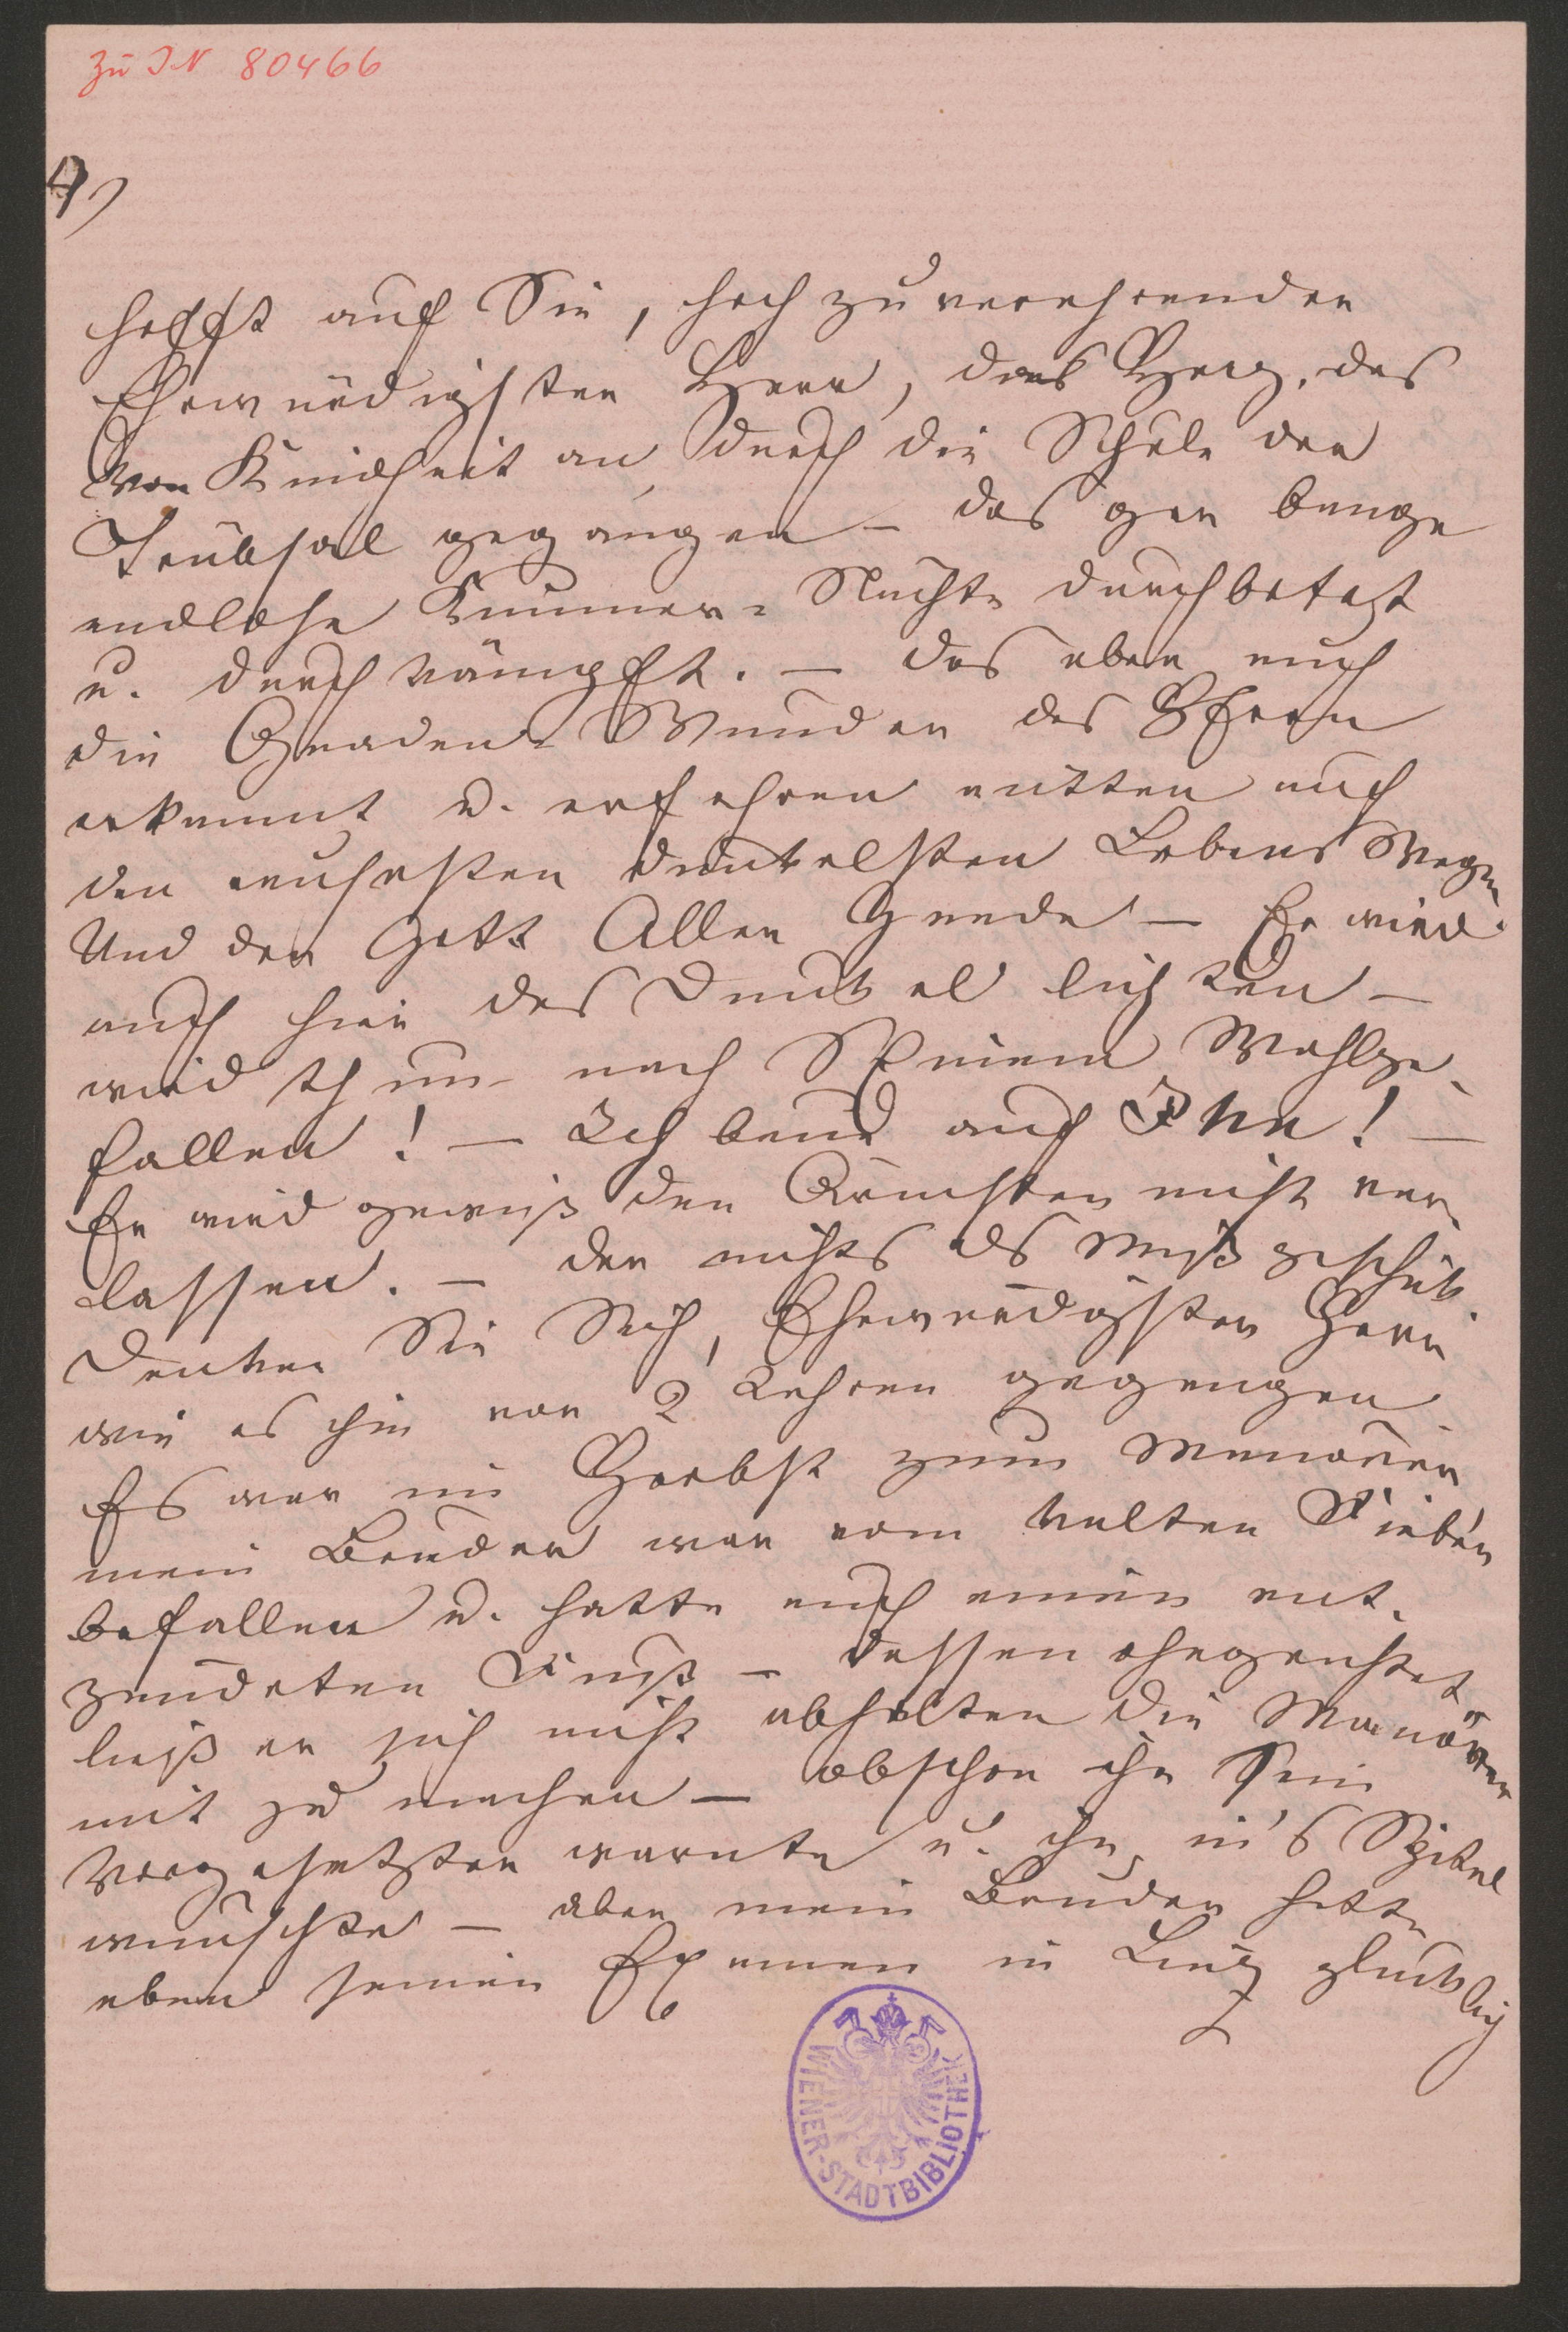 Zu IN 80466
4)
hofft auf Sie, hoch zu verehrender
Ehrwürdigster Herr, das Herz, das
von Kindheit an, durch die Schule der
Trübsal gegangen – das gar bange
endlose Kummer-Nächte durchbetet
u. durchkämpft. – das aber auch
die Gnaden-Wunder des Herrn
erkannt u. erfahren mitten auf
den rauhesten dunkelsten Lebens Wegen
Und der Gott Aller Gnade – Er wird
auch hier das Dunkel lichten –
wird thun nach Seinem Wohlge-
fallen! – Ich baue auf Ihn! –
Er wird gewiß den Ärmsten nicht ver-
lassen. – der nichts als Mißgeschick.
Denken Sie Sich, Ehrwürdigster Herr
wie es ihm vor 2 Jahren gegangen
Es war im Herbst zum Manöver
mein Bruder war vom kalten Fieber
befallen u. hatte auch einen ent-
zündeten Fuß – dessen ohngeachtet
ließ er sich nicht abhalten die Manöver
mit zu machen – obschon ihn sein
Vorgesetzter warnte u. ihn in's Spital
wünschte – aber mein Bruder hatte
eben seinen Examen in Linz glücklich
WIENER-STADTBIBLIOTHEK